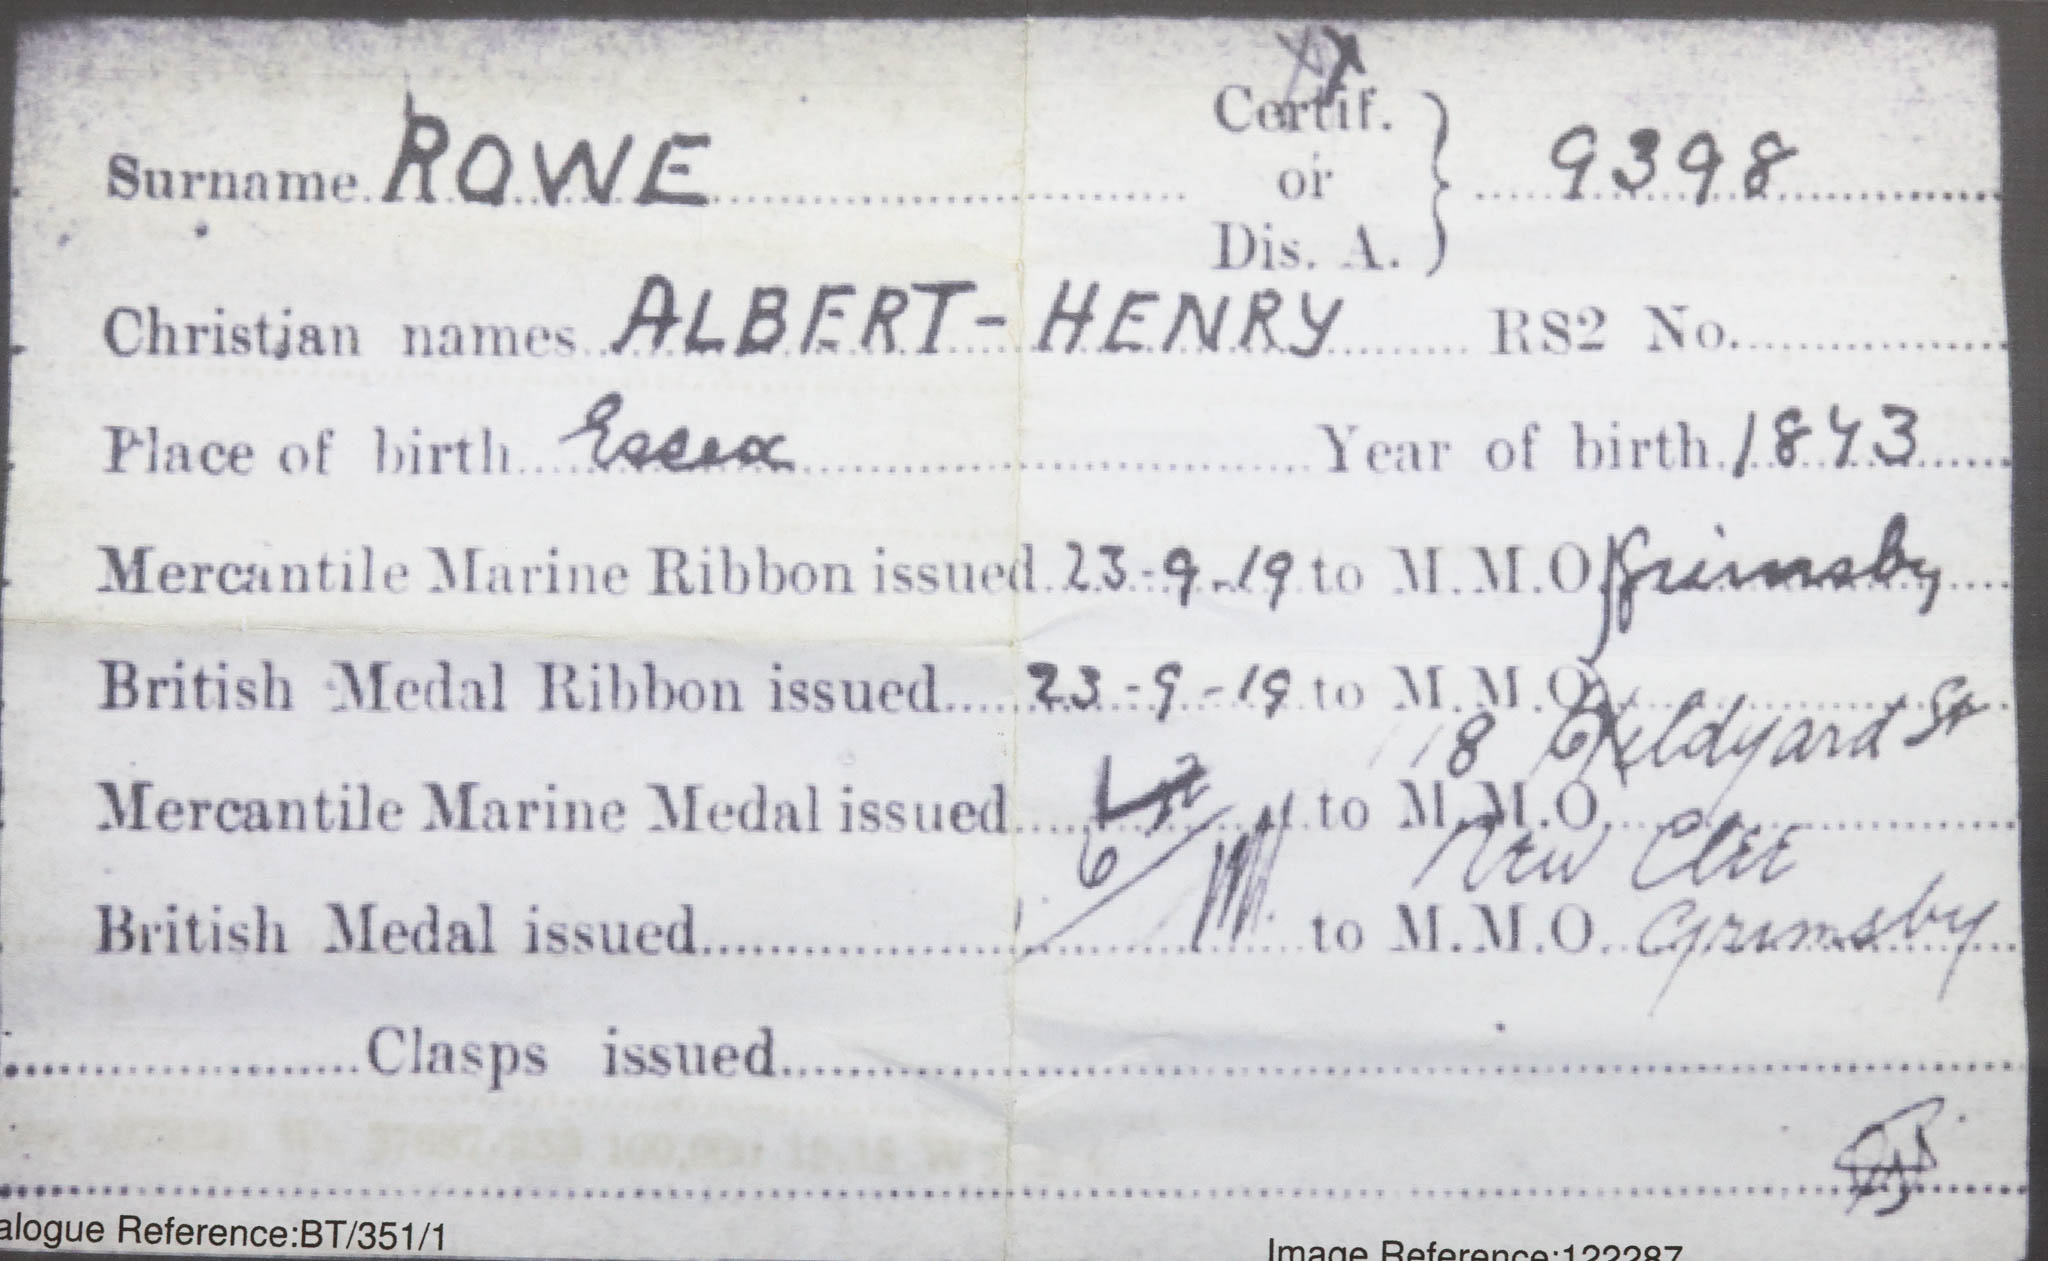 Surname ROWE Certif. or Dis. A. } 9398
Christian names ALBERT-HENRY RS2 No.
Place of birth Essex Year of birth 1843
Mercantile Marine Ribbon issued 23-9-19 to M.M.O. Grimsby
British Medal Ribbon issued 23-9-19 to M.M.O.
18 Hildyard St
Mercantile Marine Medal issued to M.M.O.
New Clee
British Medal issued to M.M.O. Grimsby
Clasps issued
alogue Reference:BT/351/1
Image Reference:122287